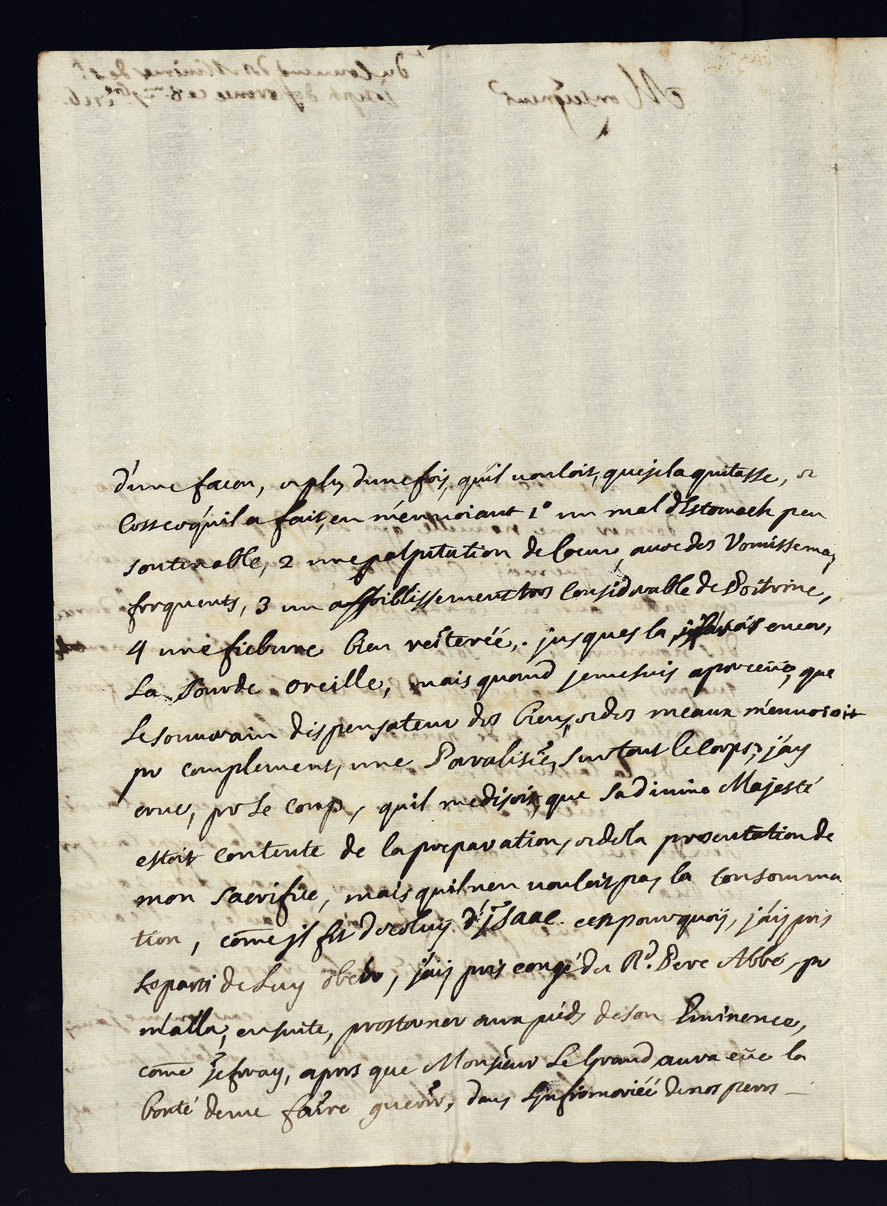 d'une facon, et plus d'une fois, qu'il vouloit, que je la quitasse, et
C'est ce qu'il a fait, en m'envoiant 1° un mal d'Estomach peu
soutenable, 2 une palpitation de Coeur, avec des Vomissemens
frequents, 3 un affoiblissement tres Considerable de Poitrine,
4 une fiebvre bien reiterée, jusques la j'avois encor,
La Sourde oreille, mais quand je me suis aperceüe, que
Le souverain dispensateur des biens, et des meaux m'envoioit
pr complement, une Paralisie, sur tout le Corps, j'ay
creu, pr Le Coup, qu'il me disoit, que Sa divine Majesté
estoit Contente de la preparation, et de la presentation de
mon Sacrifice, mais qu'il n'en vouloit pas la Consomma
tion, come jl fit de celuy d'jsaac. cest pourquoÿ, j'aÿ pris
Le parti de Luy obeir, j'aÿ pris congé du Rd. Pere Abbé, pr
m'aller, ensuite, prosterner aux pieds de son Eminence,
come je feray, apres que Monsieur Le Grand aura eüe la
bonté de me faire guerir, dans L'jnfirmerieé de nos peres
Monseigneur
du Couvent des Minimes de St